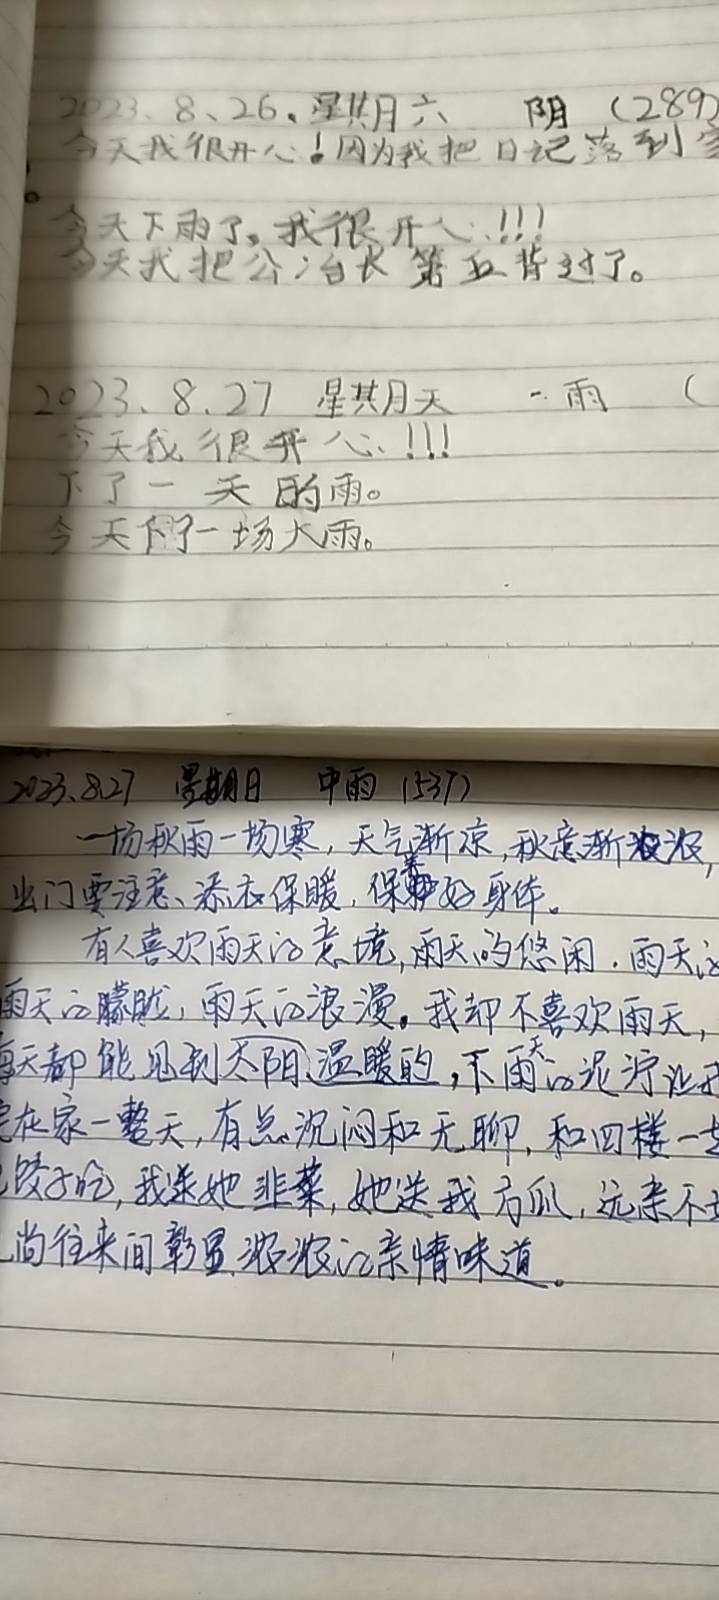 2023、8、26、星期六 阴 (289)
今天我很开心!因为我把日记落到
今天下雨了。我很开心!!!
今天我把公冶长第五背过了。
2023、8.27 星期天 雨 (
今天我很开心!!!
下了一天的雨。
今天下了一场大雨。
2023、8.27 星期日 中雨 (537)
一场秋雨一场寒,天气渐凉,秋意渐浓,
出门要注意、添衣保暖,保养好身体。
有人喜欢雨天的意境,雨天的悠闲.雨天的
雨天的朦胧,雨天的浪漫。我却不喜欢雨天,
每天都能见到太阳温暖的,下雨天的泥泞让我
在家一整天,有点沉闷和无聊,和四楼一起
饺子吃,我送她韭菜,她送我方瓜,远亲不
尚往来间彰显浓浓的亲情味道。